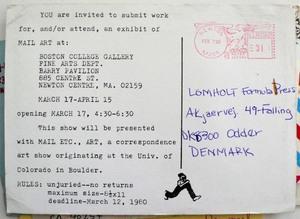 YOU are invited to submit work
for, and/or attend, an exhibit of
MAIL ART at:
BOSTON COLLEGE GALLERY
FINE ARTS DEPT.
BARRY PAVILION
885 CENTRE ST.
NEWTON CENTRE, MA. 02159
MARCH 17-APRIL 15
opening MARCH 17, 4:30-6:30
This show will be presented
with MAIL ETC., ART, a correspondence
art show originating at the Univ. of
Colorado in Boulder.
RULES: unjuried--no returns
maximum size-8½x11
deadline-March 12, 1980
LOMHOLT Formula Press
49-Falling
DK8300 Odder
DENMARK